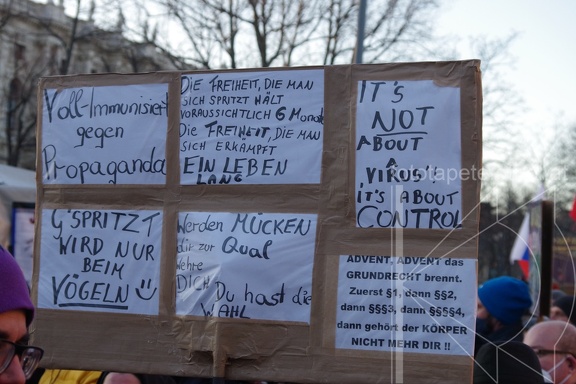 Voll-Immunisiert
gegen
Propaganda
DIE FREIHEIT, DIE MAN
SICH SPRITZT HÄLT
VORAUSSICHTLICH 6 Monate
DIE FREIHEIT, DIE MAN
SICH ERKÄMPFT
EIN LEBEN
LANG
IT'S
NOT
ABOUT
A
VIRUS!!
IT'S ABOUT
CONTROL
G'SPRITZT
WIRD NUR
BEIM
VÖGELN
Werden MÜCKEN
dir zur Qual
Wehre
DICH Du hast die
WAHL
ADVENT, ADVENT das
GRUNDRECHT brennt.
Zuerst §1, dann §§2,
dann §§§3, dann §§§§4,
dann gehört der KÖRPER
NICHT MEHR DIR !!